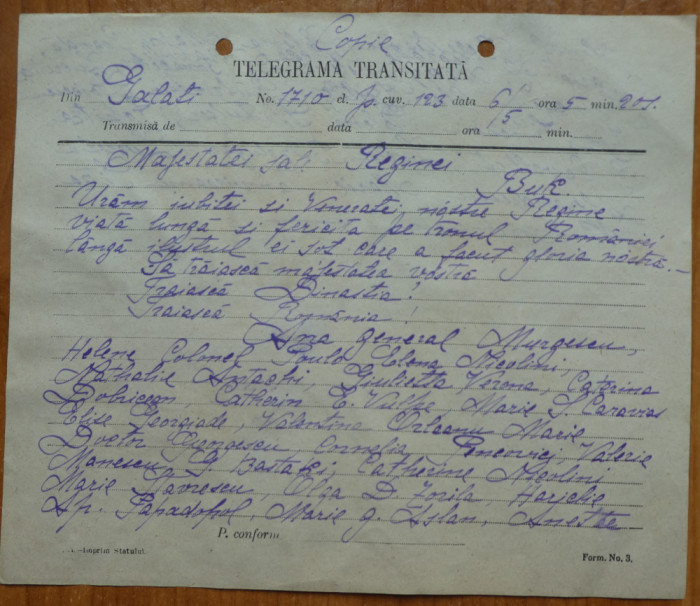 Copie
TELEGRAMA TRANSITATĂ
Din Galati No. 1710 cl. cuv. 123 data 6/5 ora 5 min. 20 s.
Transmisă de data ora min.
Majestatei sale Reginei
Buk
Urăm iubitei si Venerate, nóstre Regine
viată lungă si fericită pe tronul României,
lângă ilustrul ei sot care a facut gloria nóstră.—
Să trăiască majestatea vóstră
Traiască Dinastia!
Traiască România!
Ana general Murgescu,
Helene Colonel Elena Nicolini,
Nathalie Antachi, Giulietta Verona, Caterina
Catherin E. Vulpe, Marie S. Caravvas
Elise Georgiade, Valentine Orleanu Marie
Doctor Georgescu, Cornelia Valerie
Manescu, Catherine Nicolini
Marie Gavrescu, Olga D. Zorilă,
Sp. Papadopol, Marie g. Aslan,
P. conform
Statului.
Form. No. 3.